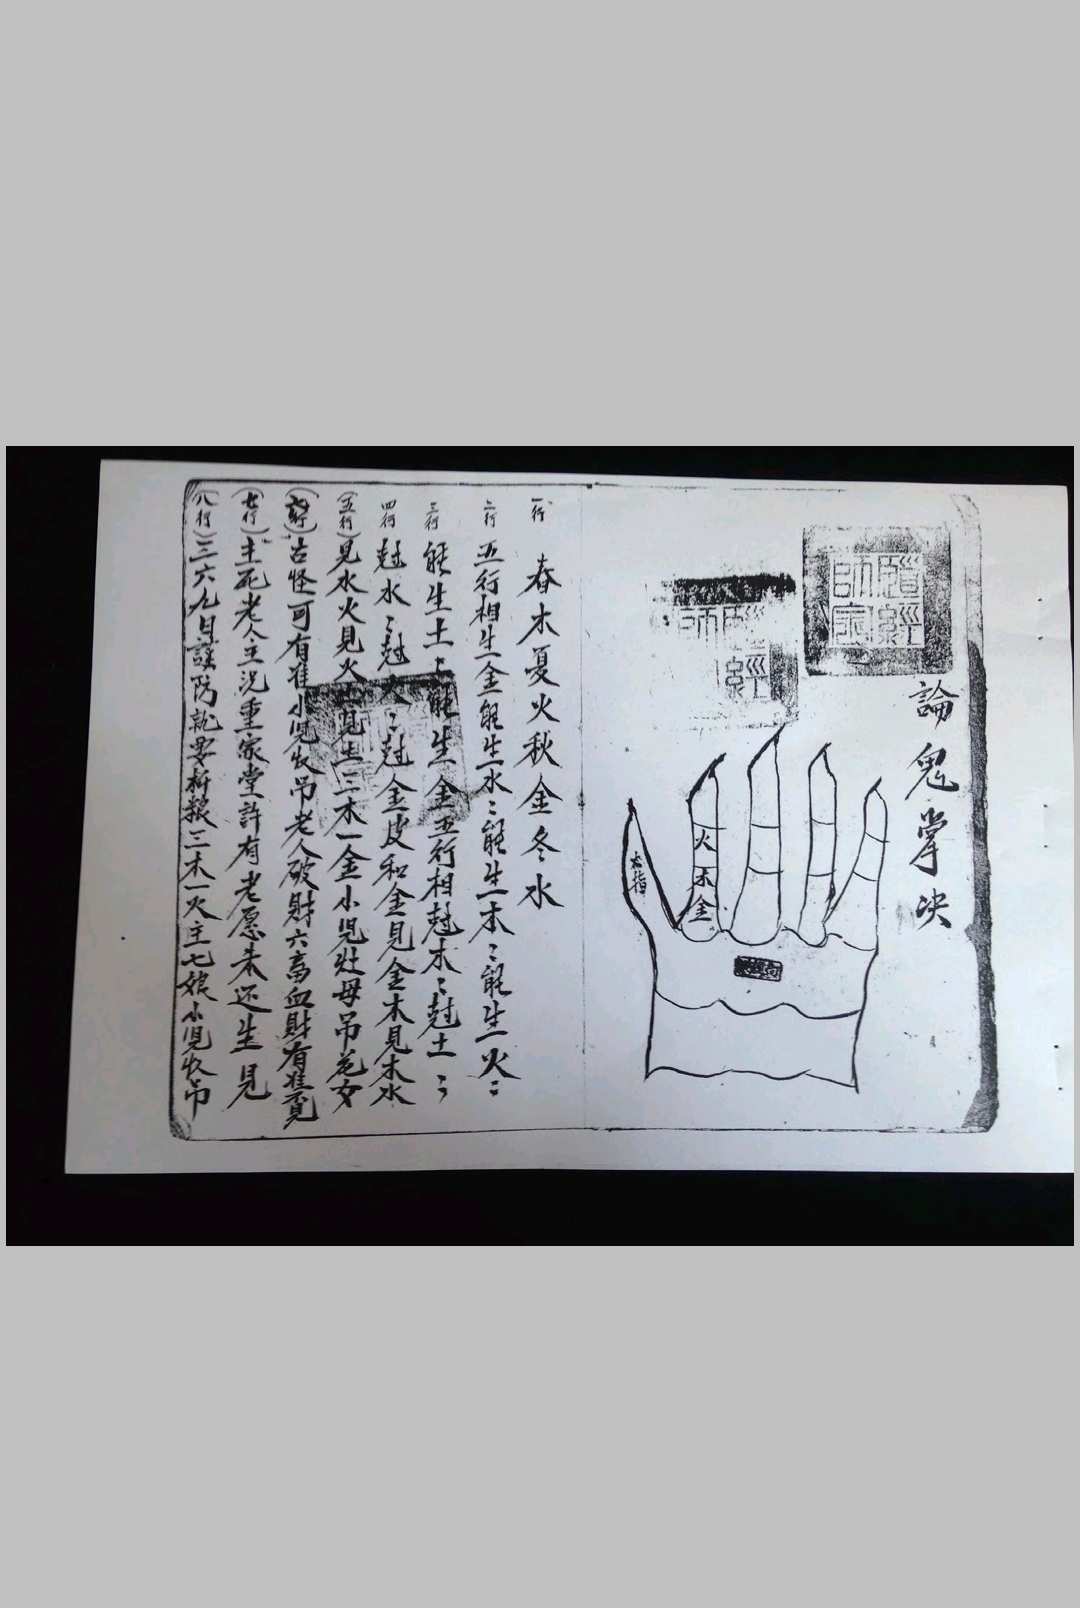 論鬼掌决
道經師寶
經師
火
木
金
大指
一行 春木夏火秋金冬水
二行 五行相生金能生水〻能生木〻能生火〻
三行 能生土〻能生金五行相尅木〻尅土〻
四行 尅水〻尅火〻尅金皮和金見金木見木水
(五行)見水火見火土見土三木一金小児灶母吊花女
(六行)古怪可有准小児失吊老人破財六畜血財有准見
(七行)主死老人主況重家堂許有老愿未还生見
(八行)三六九日謹防 三木一火主七娘小児收吊